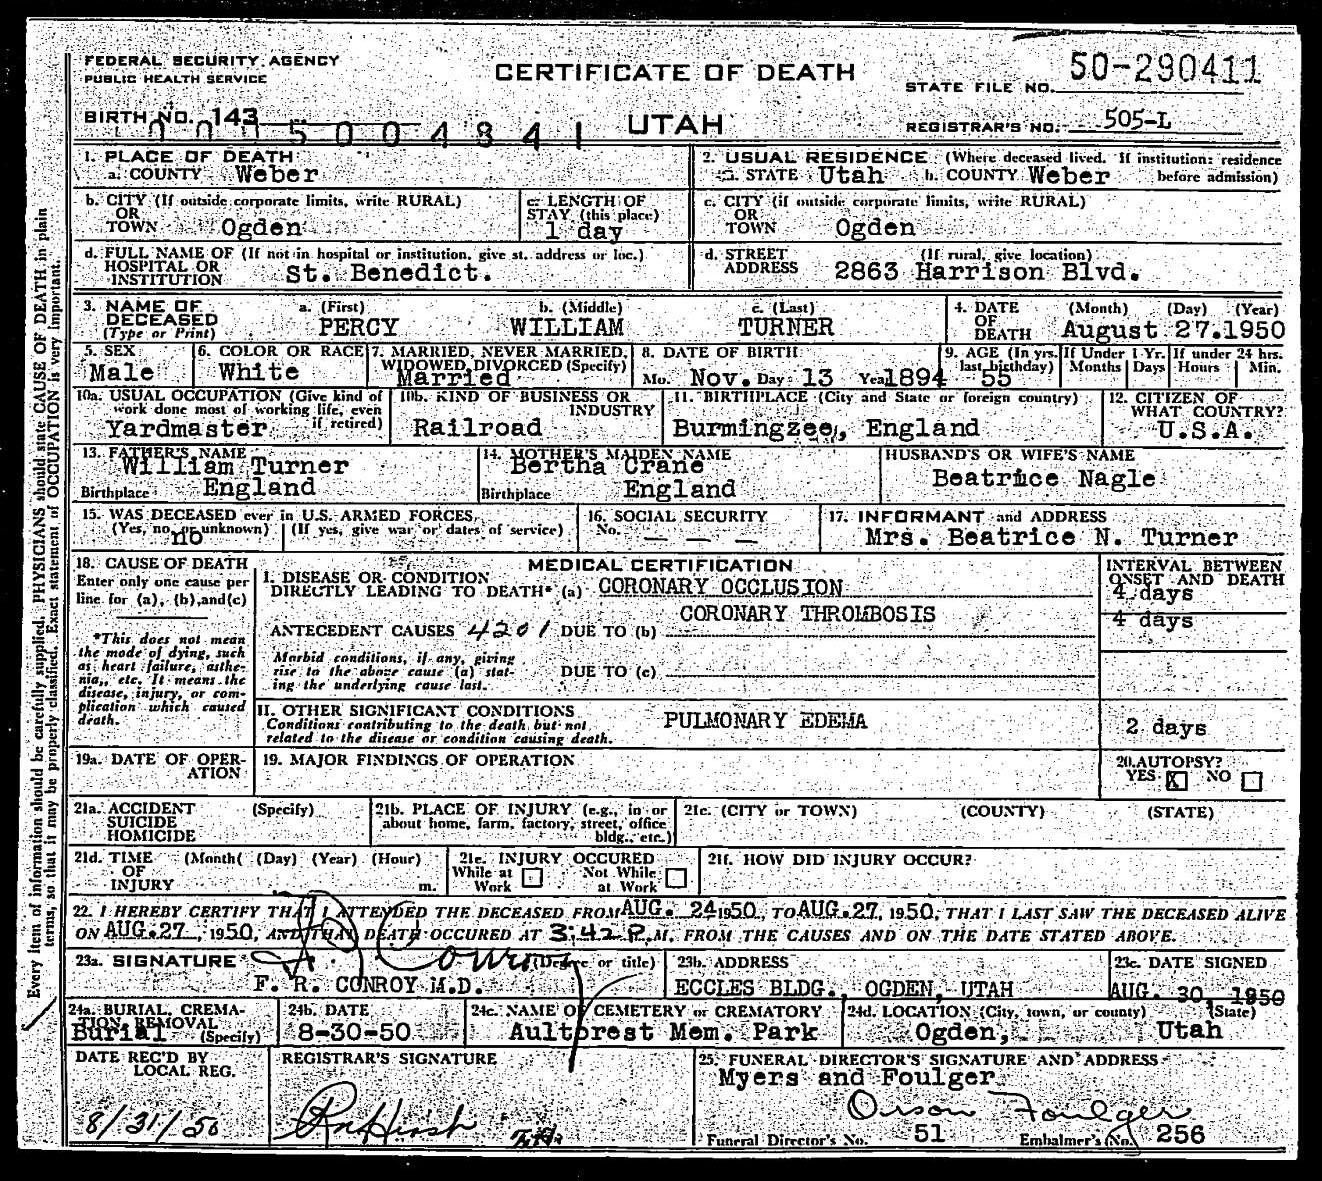 FEDERAL SECURITY AGENCY
PUBLIC HEALTH SERVICE
CERTIFICATE OF DEATH
STATE FILE NO. 50-290411
BIRTH NO. 143
UTAH
REGISTRAR'S NO. 505-L
1. PLACE OF DEATH
a. COUNTY Weber
2. USUAL RESIDENCE (Where deceased lived. If institution: residence before admission)
a. STATE Utah b. COUNTY Weber
b. CITY (If outside corporate limits, write RURAL)
OR
TOWN Ogden
c. LENGTH OF
STAY (this place)
1 day
c. CITY (if outside corporate limits, write RURAL)
OR
TOWN Ogden
d. FULL NAME OF (If not in hospital or institution, give st. address or loc.)
HOSPITAL OR
INSTITUTION St. Benedict.
d. STREET (If rural, give location)
ADDRESS 2863 Harrison Blvd.
3. NAME OF
DECEASED
(Type or Print)
a. (First) b. (Middle) c. (Last)
PERCY WILLIAM TURNER
4. DATE (Month) (Day) (Year)
OF
DEATH August 27.1950
5. SEX
Male
6. COLOR OR RACE
White
7. MARRIED, NEVER MARRIED,
WIDOWED, DIVORCED (Specify)
Married
8. DATE OF BIRTH
Mo. Nov. Day 13 Year 1894
9. AGE (In yrs.
last birthday)
55
If Under 1 Yr.
Months Days
If under 24 hrs.
Hours Min.
10a. USUAL OCCUPATION (Give kind of
work done most of working life, even
if retired)
Yardmaster
10b. KIND OF BUSINESS OR
INDUSTRY
Railroad
11. BIRTHPLACE (City and State or foreign country)
Burmingzee, England
12. CITIZEN OF
WHAT COUNTRY?
U.S.A.
13. FATHER'S NAME
William Turner
Birthplace England
14. MOTHER'S MAIDEN NAME
Bertha Crane
Birthplace England
HUSBAND'S OR WIFE'S NAME
Beatrice Nagle
15. WAS DECEASED ever in U.S. ARMED FORCES,
(Yes, no, or unknown) (If yes, give war or dates of service)
no
16. SOCIAL SECURITY
No. — — —
17. INFORMANT and ADDRESS
Mrs. Beatrice N. Turner
18. CAUSE OF DEATH
Enter only one cause per
line for (a), (b), and (c)
*This does not mean
the mode of dying, such
as heart failure, asthe-
nia, etc. It means the
disease, injury, or com-
plication which caused
death.
MEDICAL CERTIFICATION
I. DISEASE OR CONDITION
DIRECTLY LEADING TO DEATH* (a) CORONARY OCCLUSION
CORONARY THROMBOSIS
ANTECEDENT CAUSES 4201 DUE TO (b)
Morbid conditions, if any, giving
rise to the above cause (a) stat-
ing the underlying cause last.
DUE TO (c)
INTERVAL BETWEEN
ONSET AND DEATH
4 days
4 days
II. OTHER SIGNIFICANT CONDITIONS
Conditions contributing to the death but not
related to the disease or condition causing death.
PULMONARY EDEMA
2 days
19a. DATE OF OPER-
ATION
19. MAJOR FINDINGS OF OPERATION
20. AUTOPSY?
YES X NO
21a. ACCIDENT (Specify)
SUICIDE
HOMICIDE
21b. PLACE OF INJURY (e.g., in or
about home, farm, factory, street, office
bldg., etc.)
21c. (CITY or TOWN) (COUNTY) (STATE)
21d. TIME (Month( (Day) (Year) (Hour)
OF
INJURY m.
21e. INJURY OCCURED
While at Work Not While at Work
21f. HOW DID INJURY OCCUR?
22. I HEREBY CERTIFY THAT I ATTENDED THE DECEASED FROM AUG. 24 1950, TO AUG. 27, 1950, THAT I LAST SAW THE DECEASED ALIVE
ON AUG. 27, 1950, AND THAT DEATH OCCURED AT 3:42 P.M. FROM THE CAUSES AND ON THE DATE STATED ABOVE.
23a. SIGNATURE (Degree or title)
F R Conroy
F. R. CONROY M.D.
23b. ADDRESS
ECCLES BLDG., OGDEN, UTAH
23c. DATE SIGNED
AUG. 30, 1950
24a. BURIAL, CREMA-
TION, REMOVAL
Burial (Specify)
24b. DATE
8-30-50
24c. NAME OF CEMETERY or CREMATORY
Aultorest Mem. Park
24d. LOCATION (City, town, or county) (State)
Ogden, Utah
DATE REC'D BY
LOCAL REG.
8/31/50
REGISTRAR'S SIGNATURE
25. FUNERAL DIRECTOR'S SIGNATURE AND ADDRESS
Myers and Foulger
Orson Foulger
Funeral Director's No. 51 Embalmer's No. 256
Every item of information should be carefully supplied. PHYSICIANS should state CAUSE OF DEATH in plain
terms, so that it may be properly classified. Exact statement of OCCUPATION is very important.